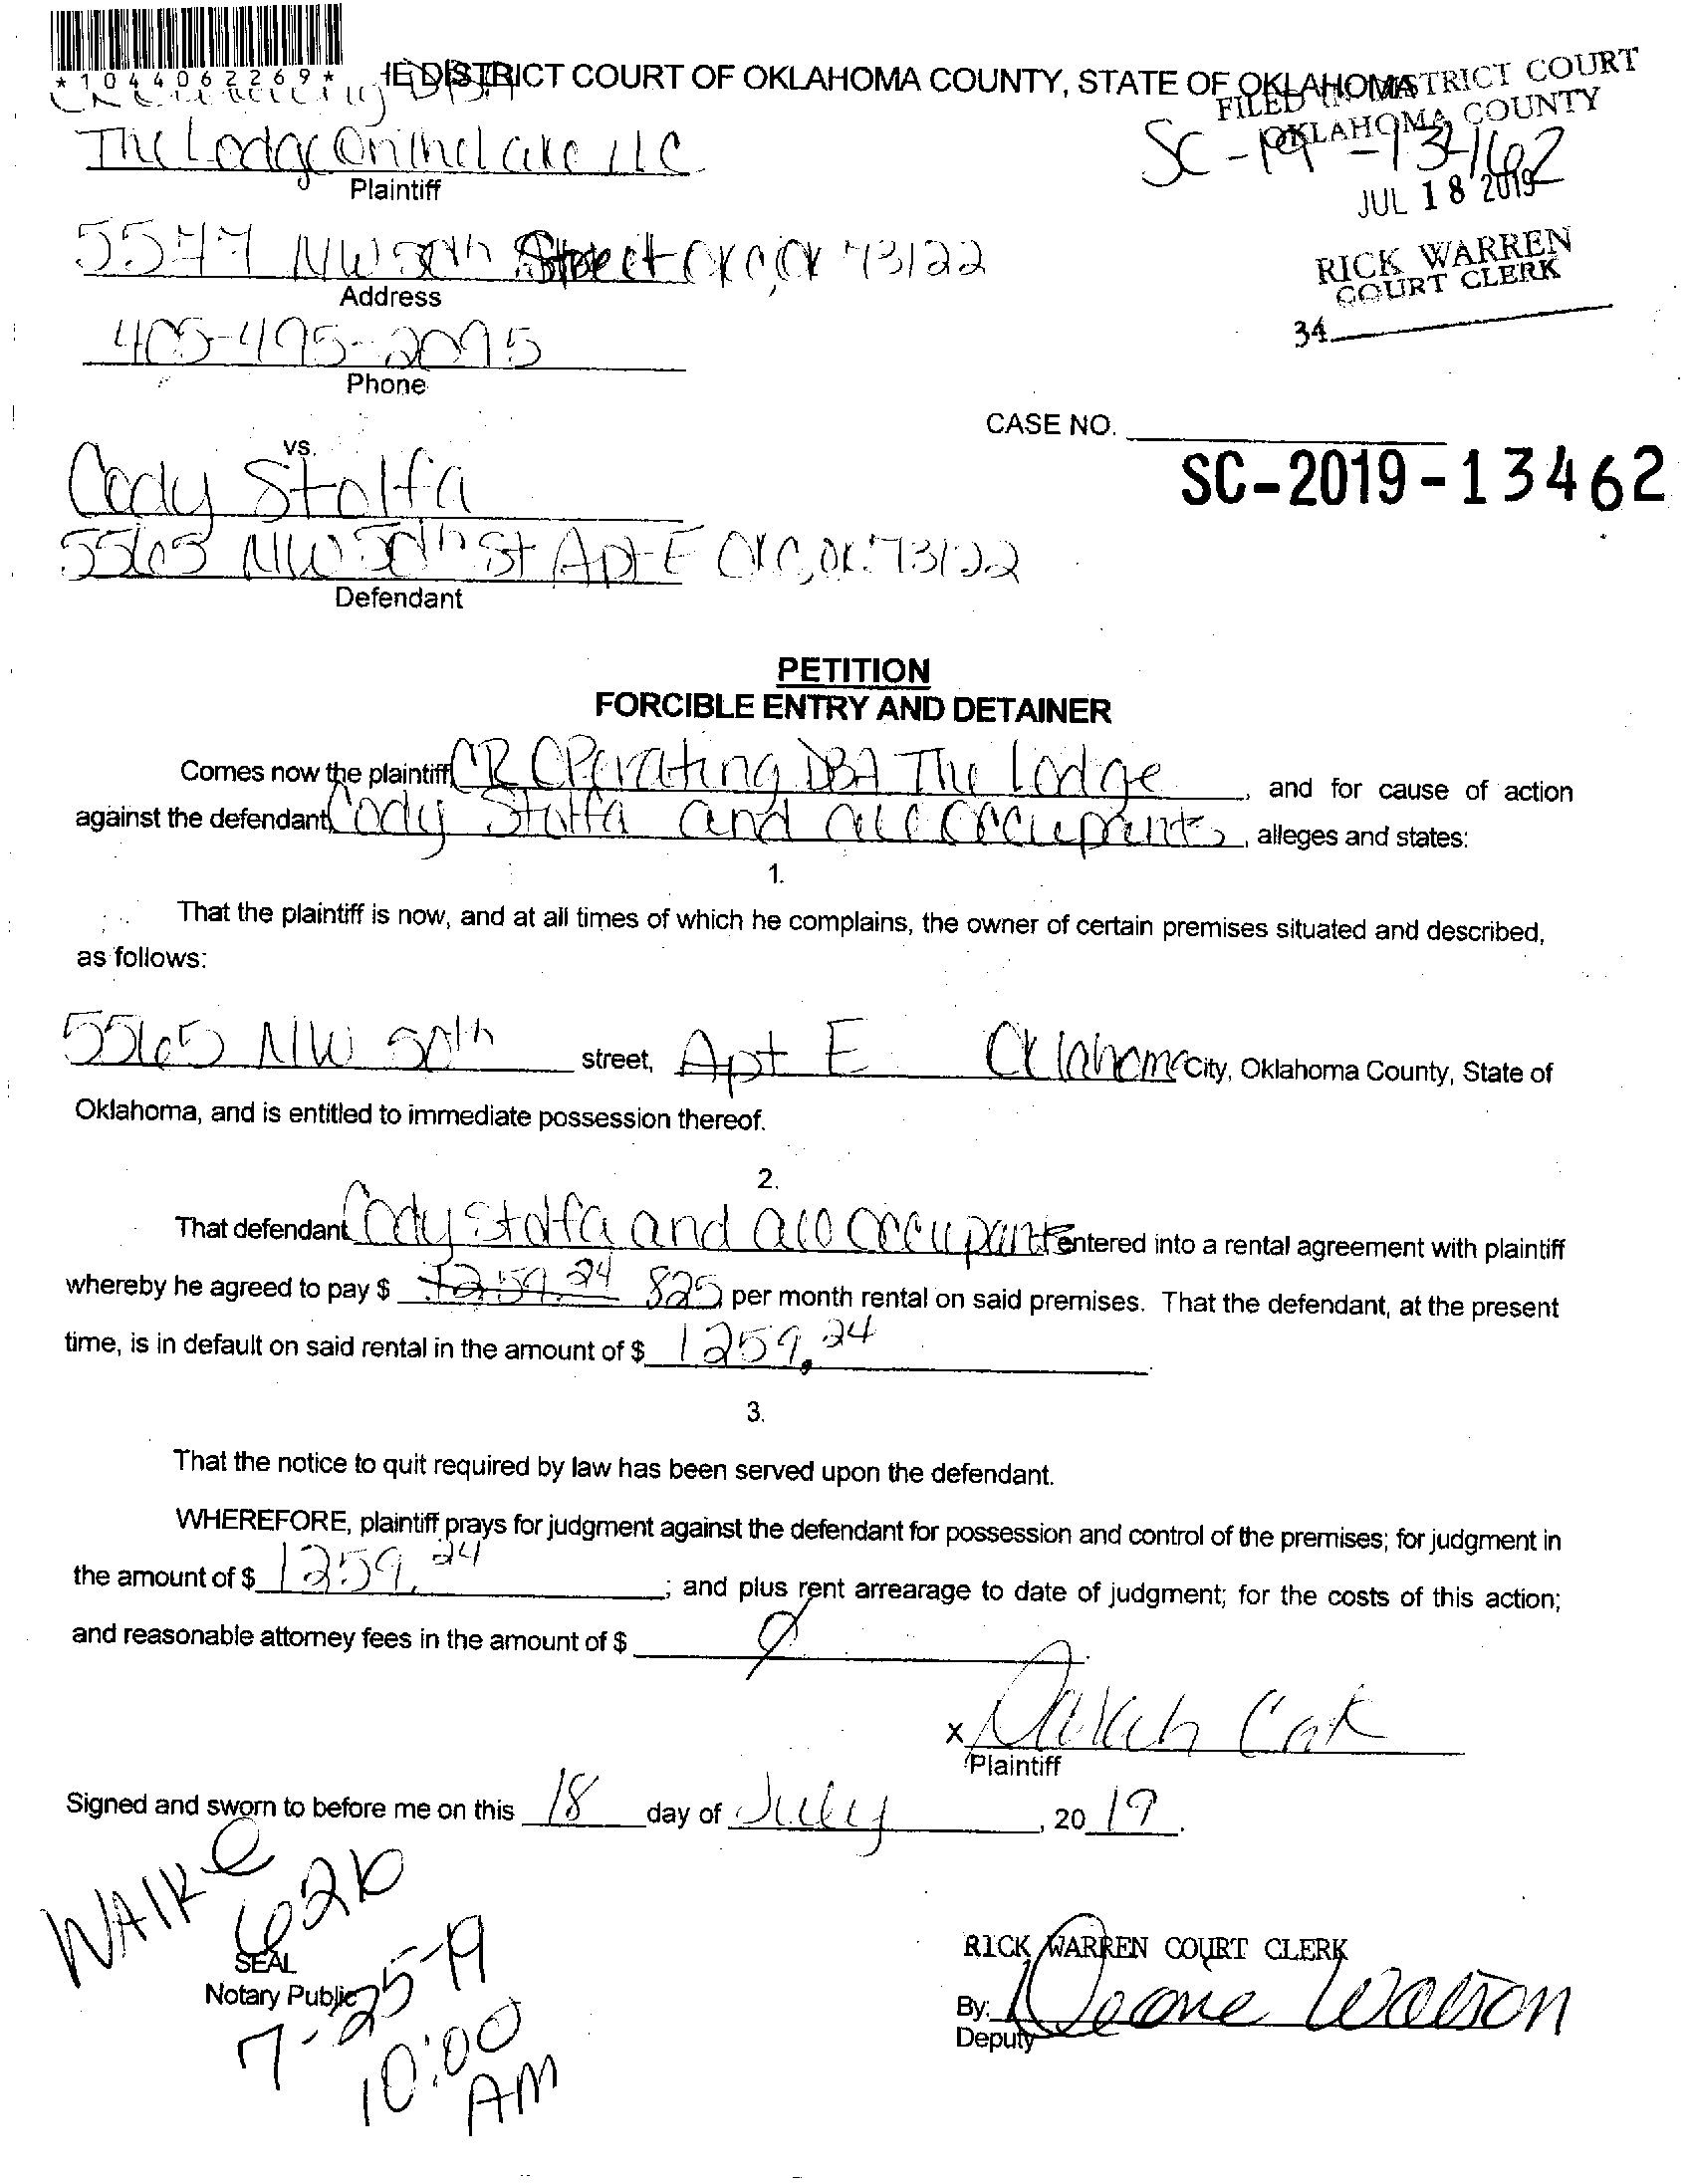 *1044062269*
HE DISTRICT COURT OF OKLAHOMA COUNTY, STATE OF OKLAHOMA
FILED IN DISTRICT COURT
OKLAHOMA COUNTY
DBA
The Lodge On the Lake LLC
SC-19-13462
Plaintiff
JUL 18 2019
5577 NW 50th Street OKC, OK 73122
RICK WARREN
COURT CLERK
Address
34
405-495-2095
Phone
CASE NO.
vs.
Cody Stolfa
SC-2019-13462
5565 NW 50th St Apt E OKC, OK 73122
Defendant
PETITION
FORCIBLE ENTRY AND DETAINER
Comes now the plaintiff CR Operating DBA The Lodge, and for cause of action
against the defendant Cody Stolfa and all occupants, alleges and states:
1.
That the plaintiff is now, and at all times of which he complains, the owner of certain premises situated and described,
as follows:
5565 NW 50th street, Apt E Oklahoma City, Oklahoma County, State of
Oklahoma, and is entitled to immediate possession thereof.
2.
That defendant Cody Stolfa and all occupants entered into a rental agreement with plaintiff
whereby he agreed to pay $ 1259.24 825 per month rental on said premises. That the defendant, at the present
time, is in default on said rental in the amount of $ 1259.24
3.
That the notice to quit required by law has been served upon the defendant.
WHEREFORE, plaintiff prays for judgment against the defendant for possession and control of the premises; for judgment in
the amount of $ 1259.24; and plus rent arrearage to date of judgment; for the costs of this action;
and reasonable attorney fees in the amount of $ 0
x
Plaintiff
Signed and sworn to before me on this 18 day of July, 2019.
WAIKE
626
SEAL
Notary Public
7-25-19
10:00
AM
RICK WARREN COURT CLERK
By:
Deputy